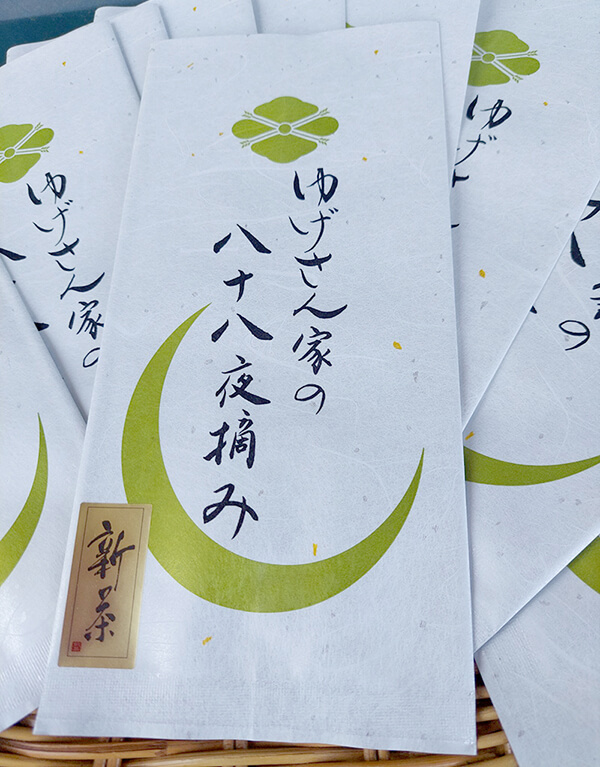 ゆげさん家の
八十八夜摘み
新茶
ゆげさん家の
ゆげさ
の